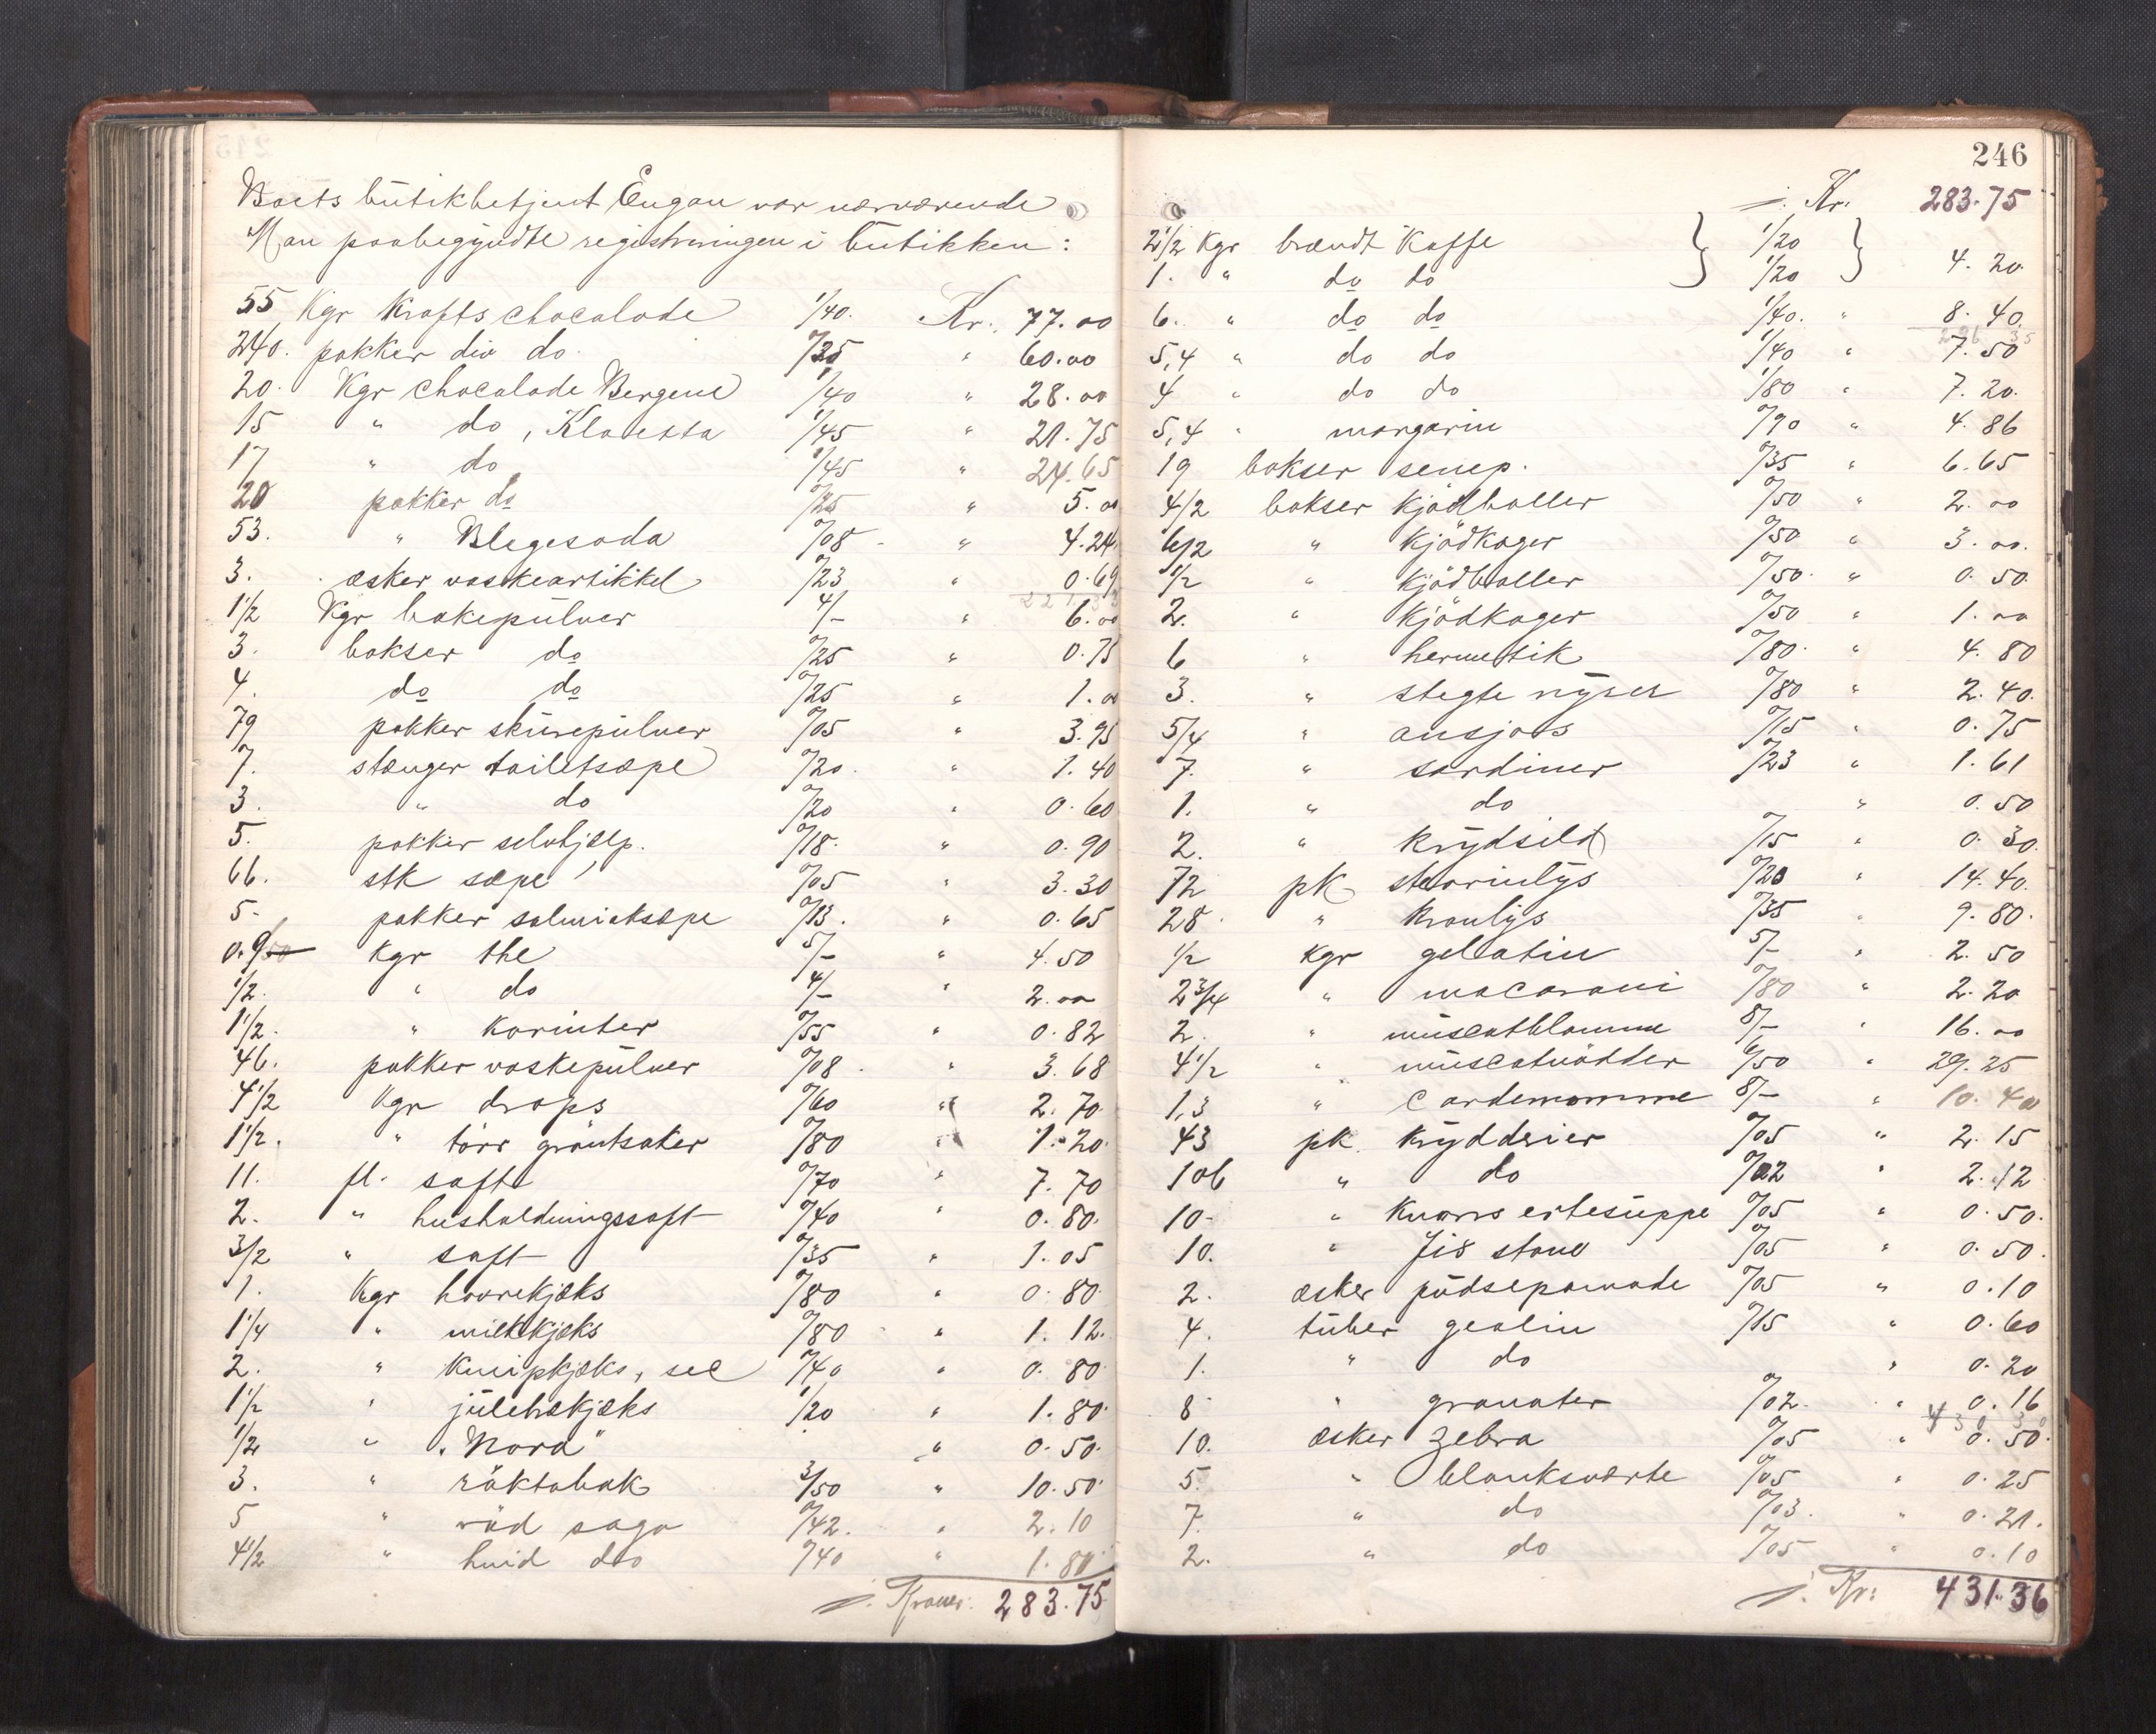 Boets butikbetjent Engan var nærværende
Man paabegyndte registreringen i butikken:
55 Kgr Kraftschocolade 1/40. Kr. 77.00
240. pakker div do. 0/25 " 60.00
20. Kgr chocolade Bergene 1/40 " 28.00
15 " do, Kloetta 1/45 " 21.75
17 " do 1/45 " 24.65
20 pakker do 0/25 " 5.00
53. " Blegesoda 0/08 " 4.24
3. æsker vaskeartikkel 0/23 " 0.69
1 1/2 Kgr bakepulver 4/- " 6.00
3. bokser do 0/25 " 0.75
4. do do 0/25 " 1.00
79 pakker skurepulver 0/05 " 3.95
7. stænger toiletsæpe 0/20. " 1.40
3. " do 0/20 " 0.60
5. pakker selvhjælp. 0/18. " 0.90
66. stk sæpe 0/05 " 3.30
5. pakker salmiaksæpe 0/13. " 0.65
0.9 Kgr the 5/- " 4.50
1/2. " do 4/- " 2.00
1 1/2. " Korinter 0/55 " 0.82
46. pakker vaskepulver 0/08 " 3.68
4 1/2 Kgr drops 0/60 " 2.70
1 1/2. " törr gröntsaker 0/80 " 1.20
11. fl. saft 0/70 " 7.70
2. " husholdningssaft 0/40 " 0.80.
3/2 " saft 0/35 " 1.05
1. Kgr havrekjæks 0/80 " 0.80
1 1/4 " milkkjæks 0/80 " 1.12.
2. " Knipkjæks, sec 0/40 " 0.80
1 1/2 " julebækjæks 1/20 " 1.80
1/2 " "Nora" " 0.50
3. " röktobak 3/50 " 10.50
5 " röd sago 0/42. " 2.10
4 1/2 " hvid do 0/40 " 1.80
Kroner. 283.75
246
Kr. 283.75
2 1/2 Kgr brændt Kaffe 1/20
1. " do do 1/20 4.20
6. " do do 1/40. " 8.40
5,4 " do do 1/40 " 7.50
4 " do do 1/80 " 7.20.
5,4 " margarin 0/90 " 4.86
19 bokser senep. 0/35 " 6.65
4/2 bokser Kjödboller 0/50 " 2.00
6/2 " Kjödkager 0/50 " 3.00.
1/2 " Kjödboller 0/50. " 0.50
2. " Kjödkager 0/50 " 1.00
6 " hermetik 0/80. " 4.80
3. " stegte ryper 0/80 " 2.40.
5/4 " ansjovs 0/15 " 0.75
7. " sardiner 0/23 " 1.61
1. " do " 0.50
2. " Krydsild 0/15 " 0.30.
72 pk stearinlys 0/20 " 14.40.
28. " Kronlys 0/35 " 9.80.
1/2 Kgr gelatin 5/- " 2.50
2 3/4 " macaroni 0/80 " 2.20
2. " muscatblomme 8/- " 16.00
4 1/2 " muscatnödder 6/50 " 29.25
1,3 " Cardemomme 8/- " 10.40
43 pk. Krydderier 0/05 " 2.15
106 " do 0/02 " 2.12
10- " Knorrs ertesuppe 0/05 " 0.50.
10. " Jis stone 0/05 " 0.50.
2. æsker pudsepomade 0/05 " 0.10
4. tuber geolin 0/15 " 0.60
1. " do " 0.20
8 " granater 0/02. " 0.16
10. æsker Zebra 0/05 " 0.50.
5. " blanksværte 0/05 " 0.25
7. " do 0/03. " 0.21.
2. " do 0/05 " 0.10
Kr: 431.36